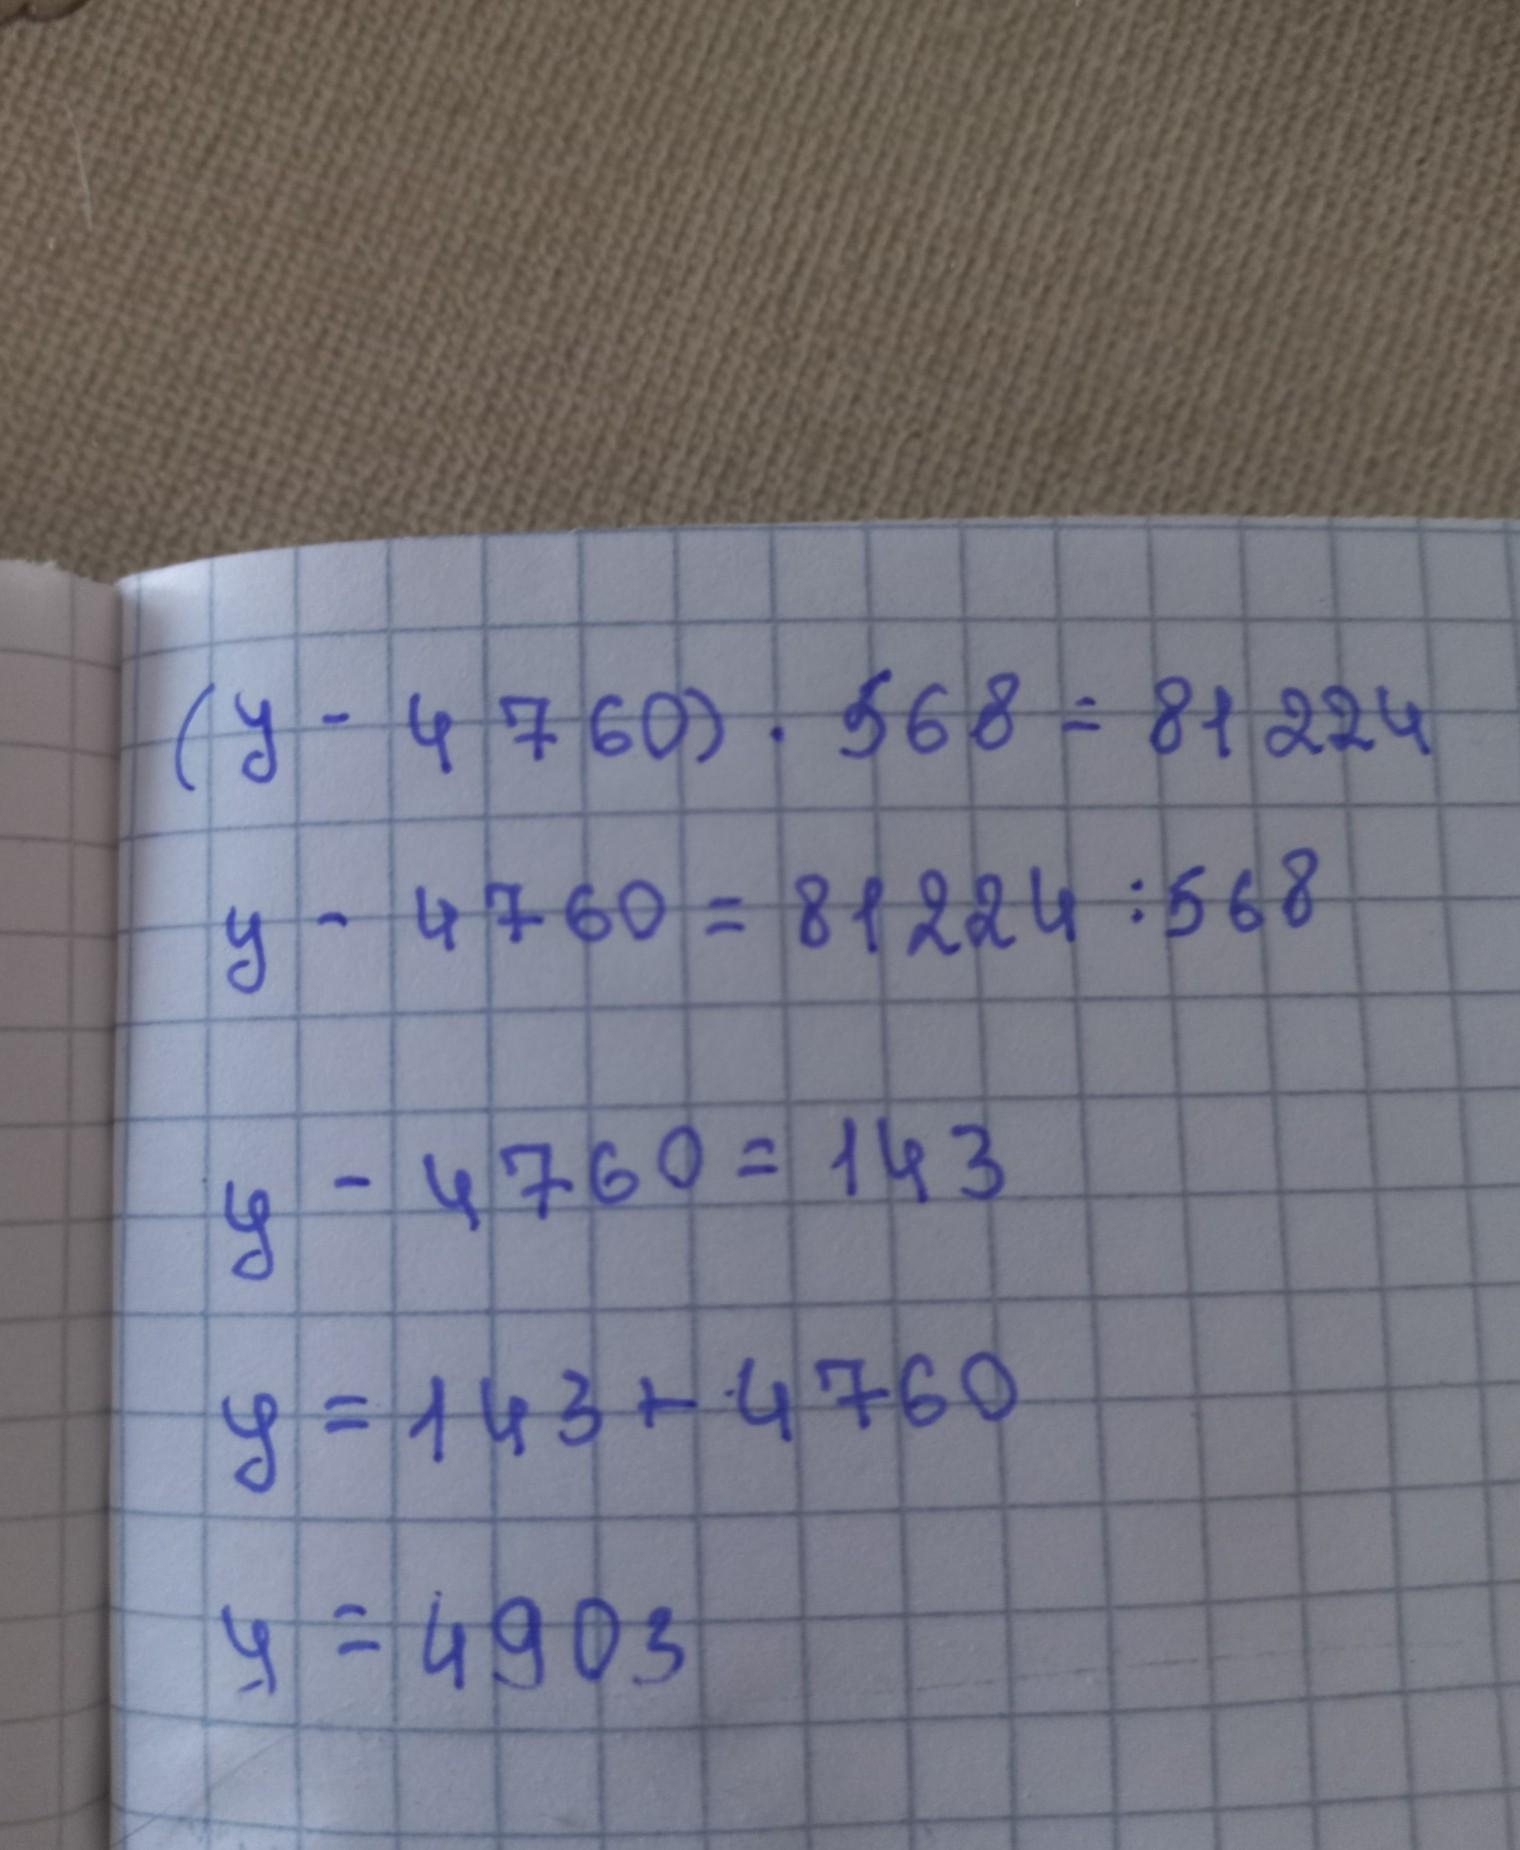 (y - 4760) · 568 = 81224
y - 4760 = 81224 : 568
y - 4760 = 143
y = 143 + 4760
y = 4903